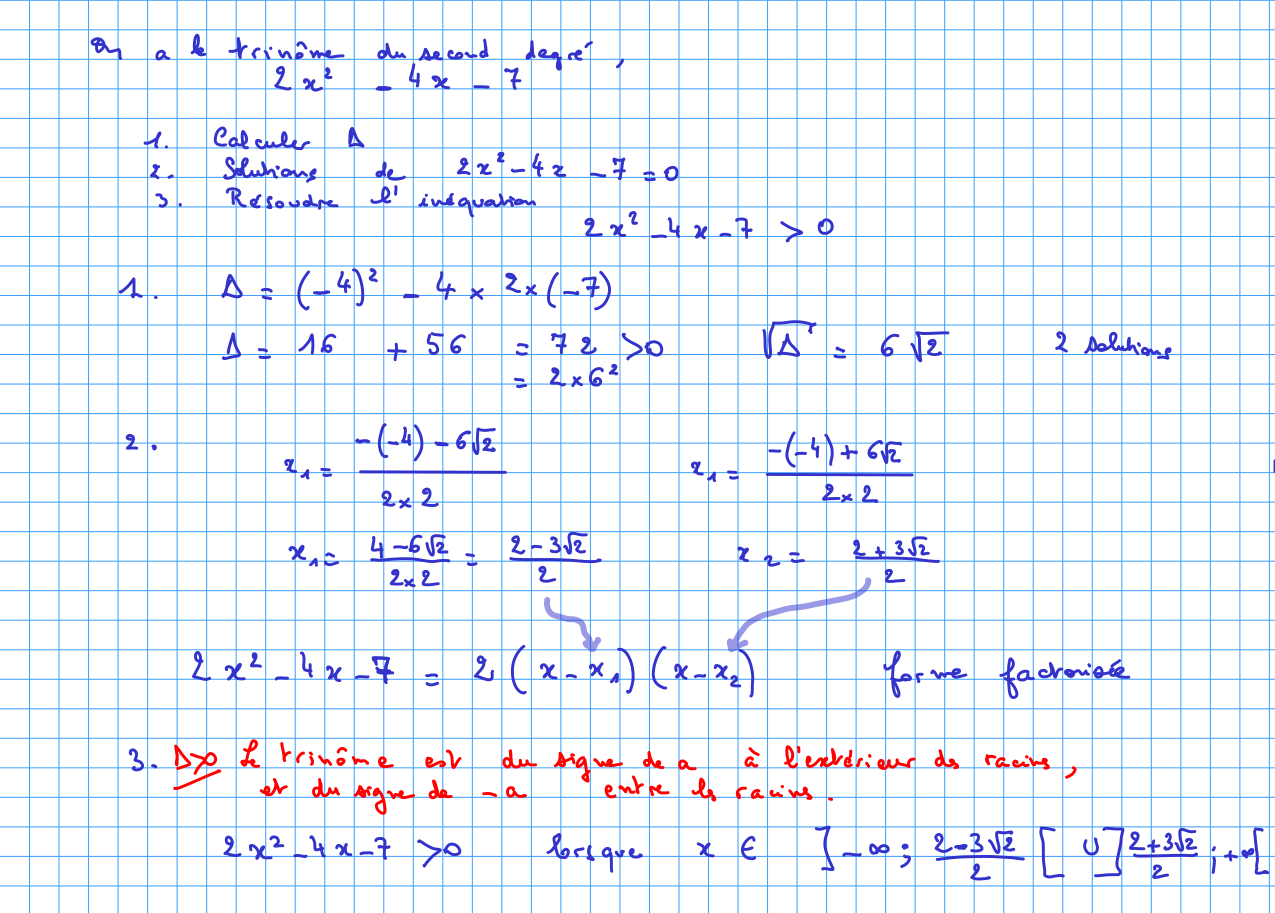 On a le trinôme du second degré,
2x² - 4x - 7
1. Calculer Δ
2. Solutions de 2x² - 4x - 7 = 0
3. Résoudre l'inéquation
2x² - 4x - 7 > 0
1. Δ = (-4)² - 4 × 2 × (-7)
Δ = 16 + 56 = 72 > 0 √Δ = 6√2 2 solutions
= 2 × 6²
2. x₁ = (-(-4) - 6√2)/(2 × 2) x₁ = (-(-4) + 6√2)/(2 × 2)
x₁ = (4 - 6√2)/(2 × 2) = (2 - 3√2)/2 x₂ = (2 + 3√2)/2
2x² - 4x - 7 = 2 (x - x₁) (x - x₂) forme factorisée
3. Δ>0 Le trinôme est du signe de a à l'extérieur des racines,
et du signe de -a entre les racines.
2x² - 4x - 7 > 0 lorsque x ∈ ]-∞ ; (2 - 3√2)/2 [ ∪ ] (2 + 3√2)/2 ; +∞[